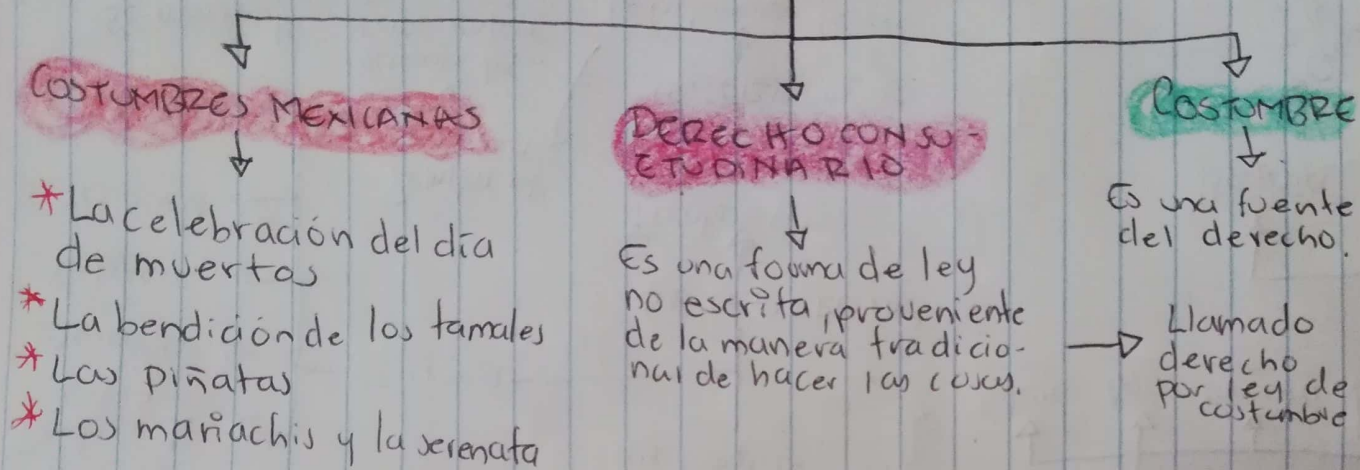 COSTUMBRES MEXICANAS
* La celebración del día
de muertos
* La bendición de los tamales
* Las piñatas
* Los mariachis y la serenata
DERECHO CONSU-
ETUDINARIO
Es una forma de ley
no escrita, proveniente
de la manera tradicio-
nal de hacer las cosas.
COSTUMBRE
Es una fuente
del derecho.
Llamado
derecho
por ley de
costumbre